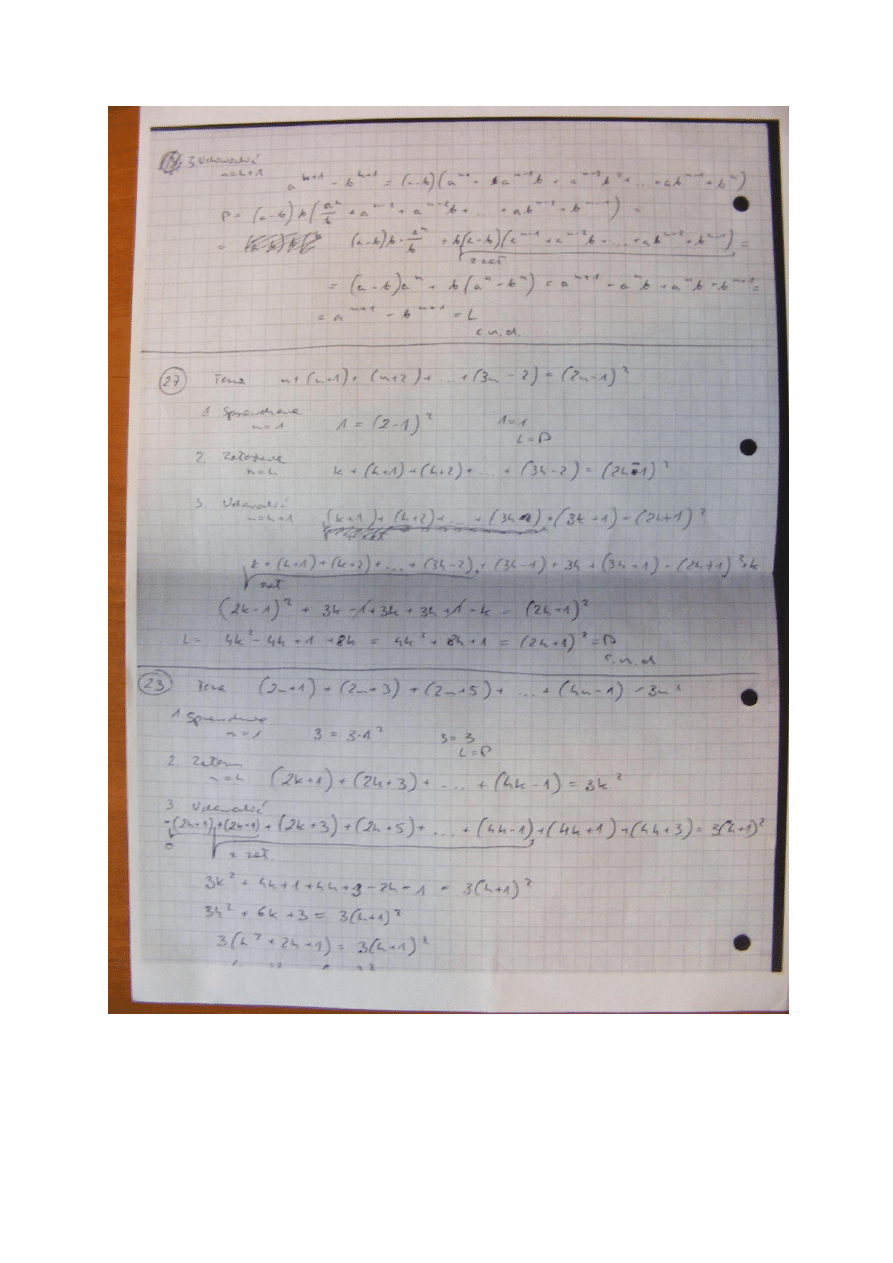 3. Udowodnić
n=k+1
a^{n+1} - b^{n+1} = (a-b)(a^n + a^{n-1}b + a^{n-2}b^2 + ... + ab^{n-1} + b^n)
P = (a-b)b(a^n/b + a^{n-1} + a^{n-2}b + ... + ab^{n-2} + b^{n-1}) =
= (a-b)b · a^n/b + b(a-b)(a^{n-1} + a^{n-2}b + ... + ab^{n-2} + b^{n-1}) =
z zał
= (a-b)a^n + b(a^n - b^n) = a^{n+1} - a^n b + a^n b - b^{n+1} =
= a^{n+1} - b^{n+1} = L
c.n.d.
27 Teza n + (n+1) + (n+2) + ... + (3n-2) = (2n-1)^2
1. Sprawdzenie
n=1 1 = (2-1)^2 1=1
L=P
2. Założenie
n=k k + (k+1) + (k+2) + ... + (3k-2) = (2k-1)^2
3. Udowodnić
n=k+1 (k+1) + (k+2) + ... + (3k) + (3k+1) = (2k+1)^2
k + (k+1) + (k+2) + ... + (3k-2) + (3k-1) + 3k + (3k+1) = (2k+1)^2 + k
zał
(2k-1)^2 + 3k - 1 + 3k + 3k + 1 - k = (2k+1)^2
L = 4k^2 - 4k + 1 + 8k = 4k^2 + 8k + 1 = (2k+1)^2 = P
c.n.d
23 Teza (2n+1) + (2n+3) + (2n+5) + ... + (4n-1) = 3n^2
1 Sprawdzenie
n=1 3 = 3·1^2 3=3
L=P
2. Założenie
n=k (2k+1) + (2k+3) + ... + (4k-1) = 3k^2
3 Udowodnić
-(2k+1) + (2k+1) + (2k+3) + (2k+5) + ... + (4k-1) + (4k+1) + (4k+3) = 3(k+1)^2
0 z zał.
3k^2 + 4k + 1 + 4k + 3 - 2k - 1 = 3(k+1)^2
3k^2 + 6k + 3 = 3(k+1)^2
3(k^2 + 2k + 1) = 3(k+1)^2